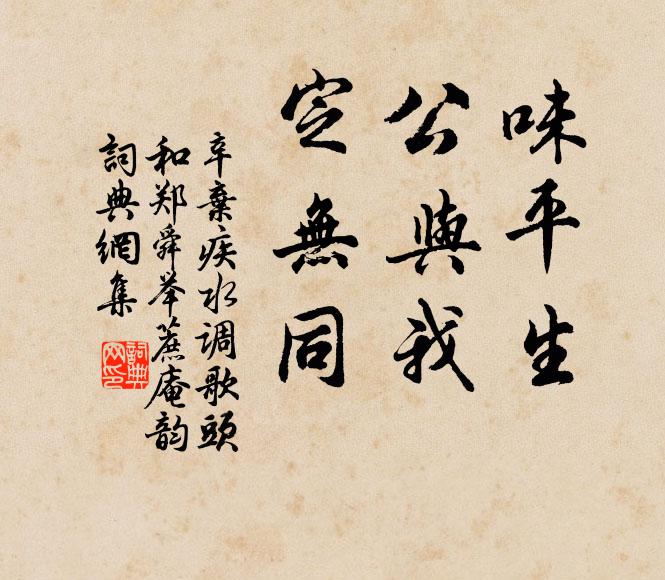 味平生
公與我
定無同
辛棄疾水调歌頭
和郑舜举蔗庵韵
詞典網集
詞典网印